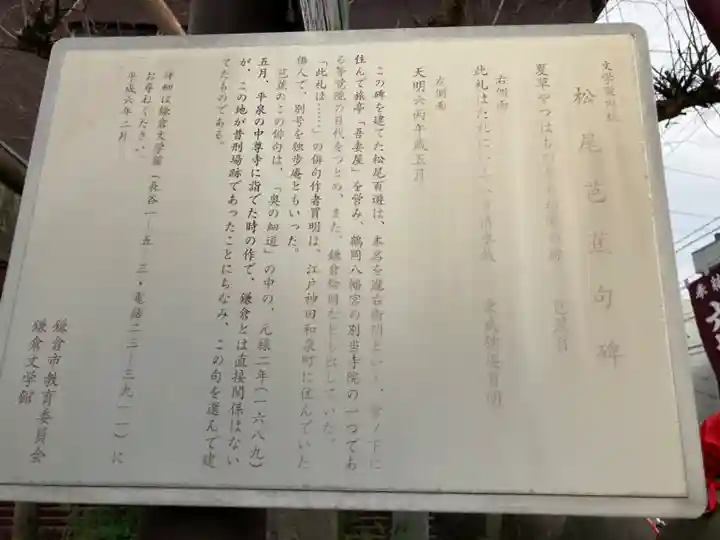 文学案内板
松尾芭蕉句碑
夏草やつはもの 芭蕉翁
右側面
此礼はた礼に
左側面
天明六丙午歳五月
この碑を建てた松尾百遊は、本名を瀧右衛門といい、雪ノ下に
住んで旅亭「吾妻屋」を営み、鶴岡八幡宮の別当寺院の一つであ
る等覚院の目代をつとめ、また、鎌倉絵図なども出していた。
「此礼は……」の俳句作者買明は、江戸神田和泉町に住んでいた
俳人で、別号を独歩庵ともいった。
芭蕉のこの俳句は、「奥の細道」の中の、元禄二年(一六八九)
五月、平泉の中尊寺に詣でた時の作で、鎌倉とは直接関係はない
が、この地が昔刑場跡であったことにちなみ、この句を選んで建
てたものである。
詳細は鎌倉文学館(長谷一ー五ー三・電話二三ー三九一一)に
お尋ねください。
平成六年二月
鎌倉市教育委員会
鎌倉文学館
奉納